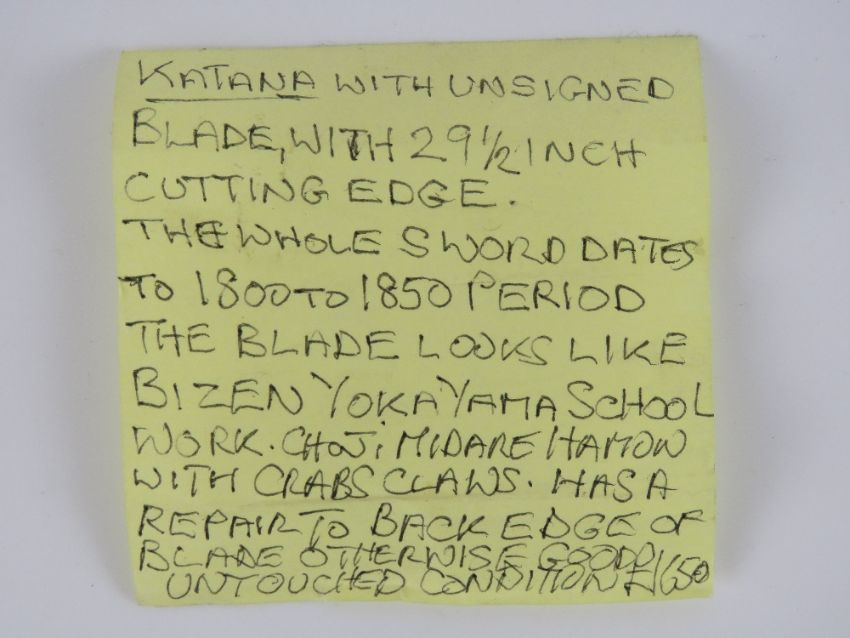 KATANA WITH UNSIGNED
BLADE, WITH 29 1/2 INCH
CUTTING EDGE.
THE WHOLE SWORD DATES
TO 1800 TO 1850 PERIOD
THE BLADE LOOKS LIKE
BIZEN YOKAYAMA SCHOOL
WORK. CHOJi MIDARE HAMON
WITH CRABS CLAWS. HAS A
REPAIR TO BACK EDGE OF
BLADE OTHERWISE GOOD
UNTOUCHED CONDITION £1650